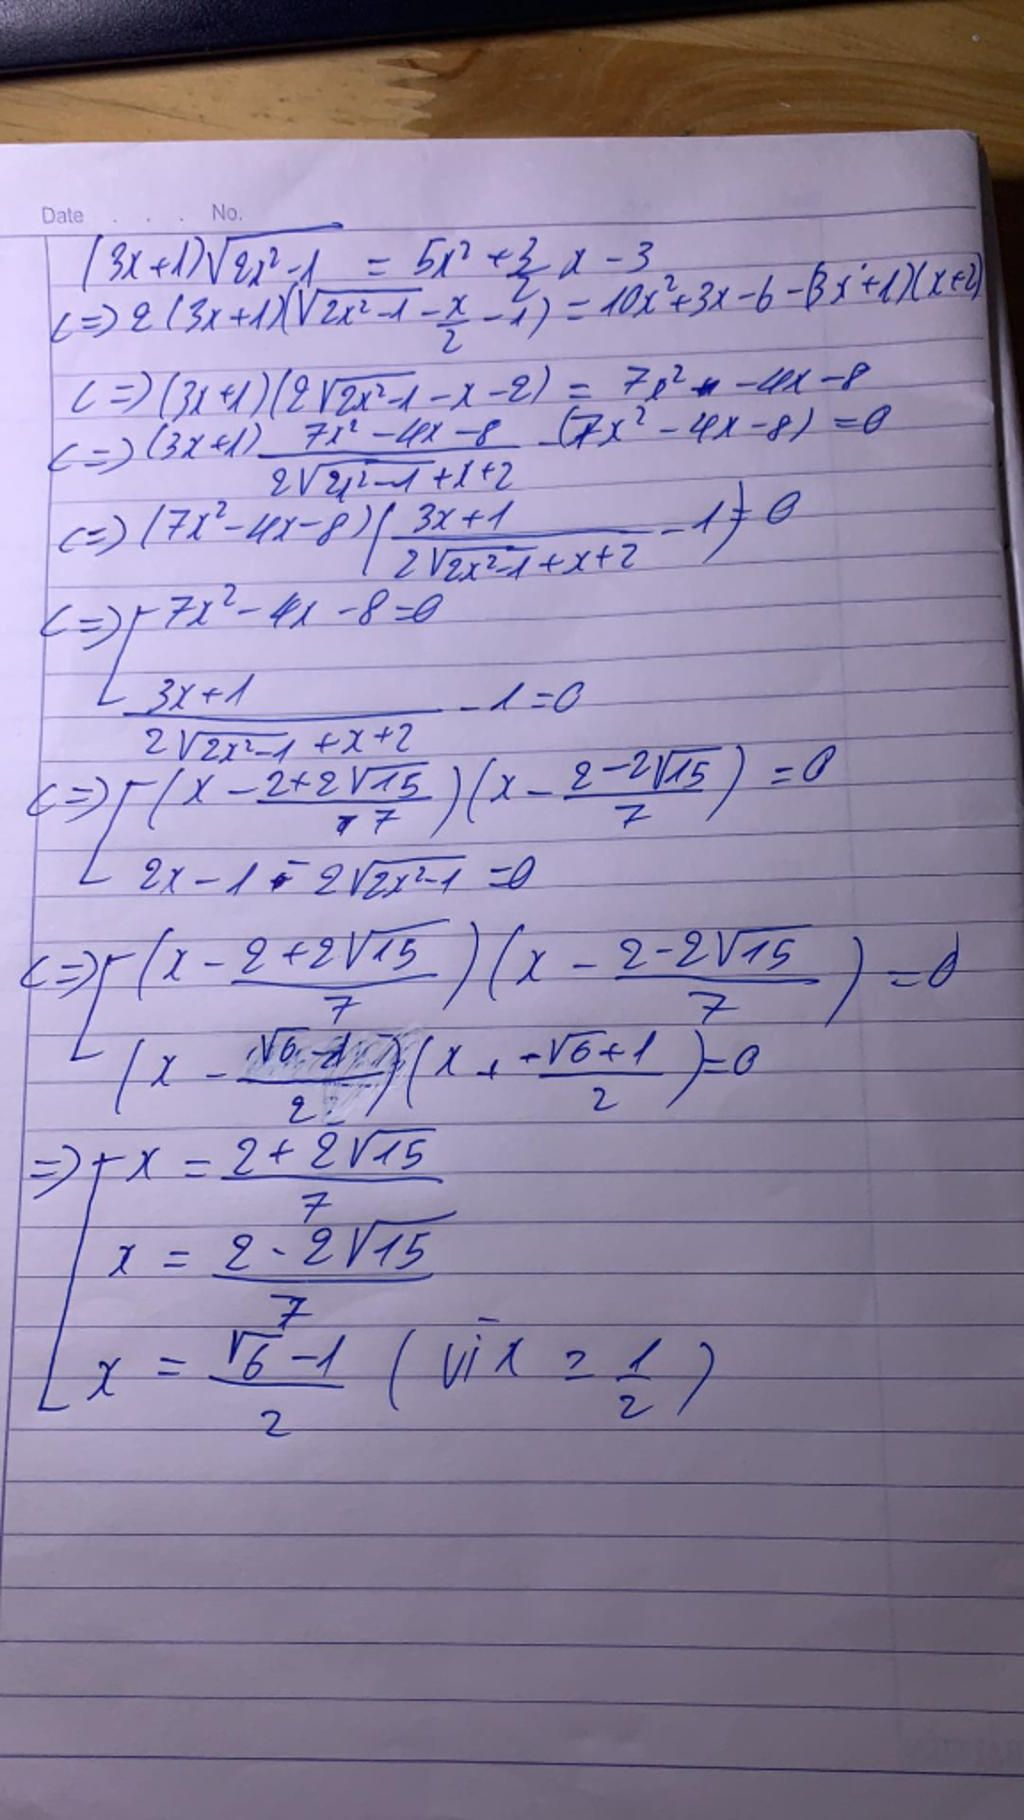 Date . . . No.
(3x+1)√(2x²-1) = 5x² + 3/2 x - 3
<=> 2(3x+1)(√(2x²-1) - x/2 - 1) = 10x² + 3x - 6 - (3x+1)(x+2)
<=> (3x+1)(2√(2x²-1) - x - 2) = 7x² - 4x - 8
<=> (3x+1) (7x² - 4x - 8)/(2√(2x²-1) + x + 2) - (7x² - 4x - 8) = 0
<=> (7x² - 4x - 8)((3x+1)/(2√(2x²-1) + x + 2) - 1) = 0
<=> [ 7x² - 4x - 8 = 0
(3x+1)/(2√(2x²-1) + x + 2) - 1 = 0
<=> [ (x - (2+2√15)/7)(x - (2-2√15)/7) = 0
2x - 1 - 2√(2x²-1) = 0
<=> [ (x - (2+2√15)/7)(x - (2-2√15)/7) = 0
(x - (√6-1)/2)(x + (√6+1)/2) = 0
=> [ x = (2+2√15)/7
x = (2-2√15)/7
x = (√6-1)/2 (vì x ≥ 1/2)